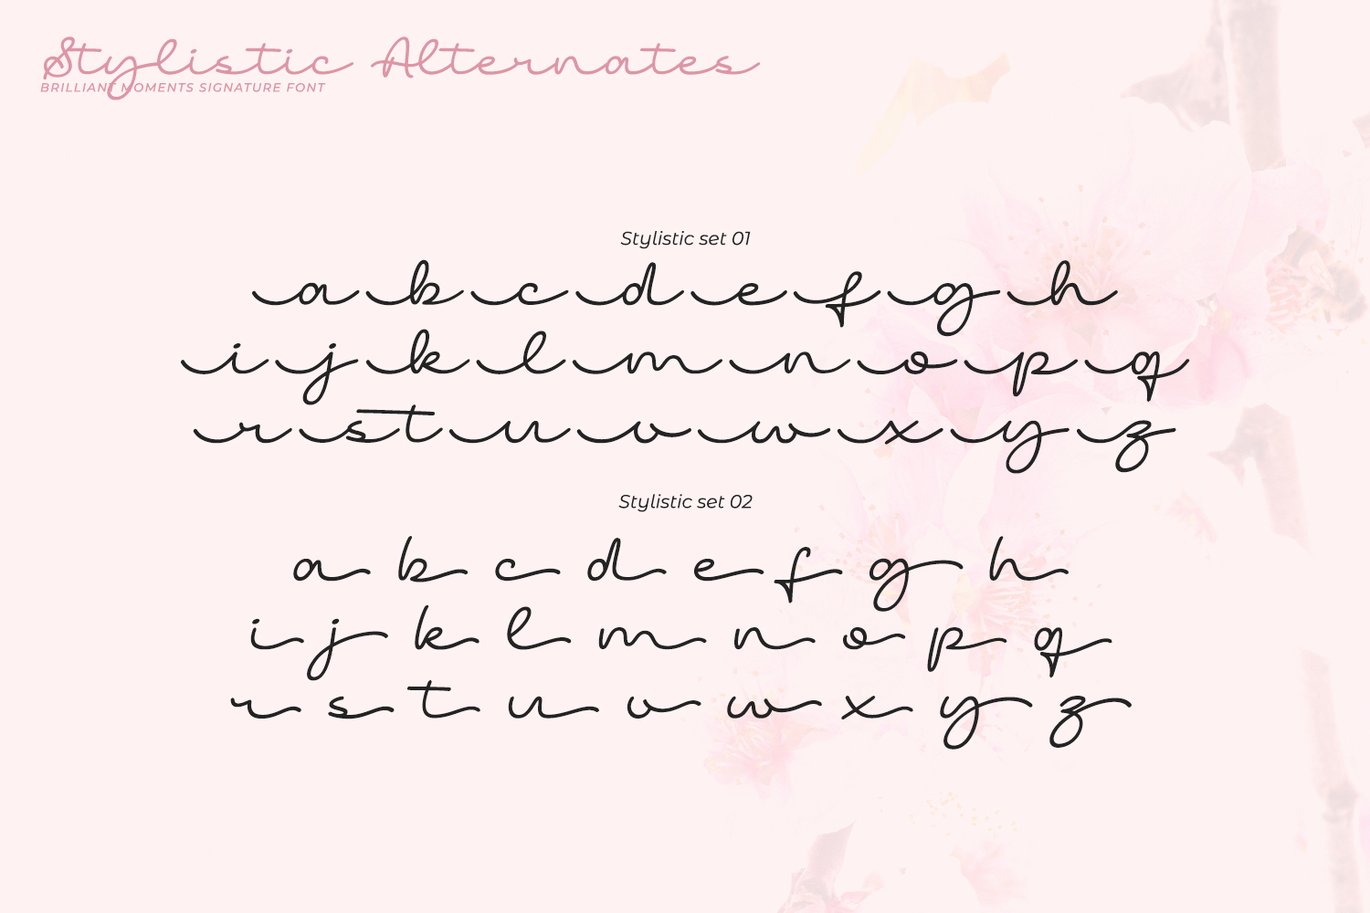 Stylistic Alternates
BRILLIANT MOMENTS SIGNATURE FONT
Stylistic set 01
a b c d e f g h
i j k l m n o p q
r s t u v w x y z
Stylistic set 02
a b c d e f g h
i j k l m n o p q
r s t u v w x y z